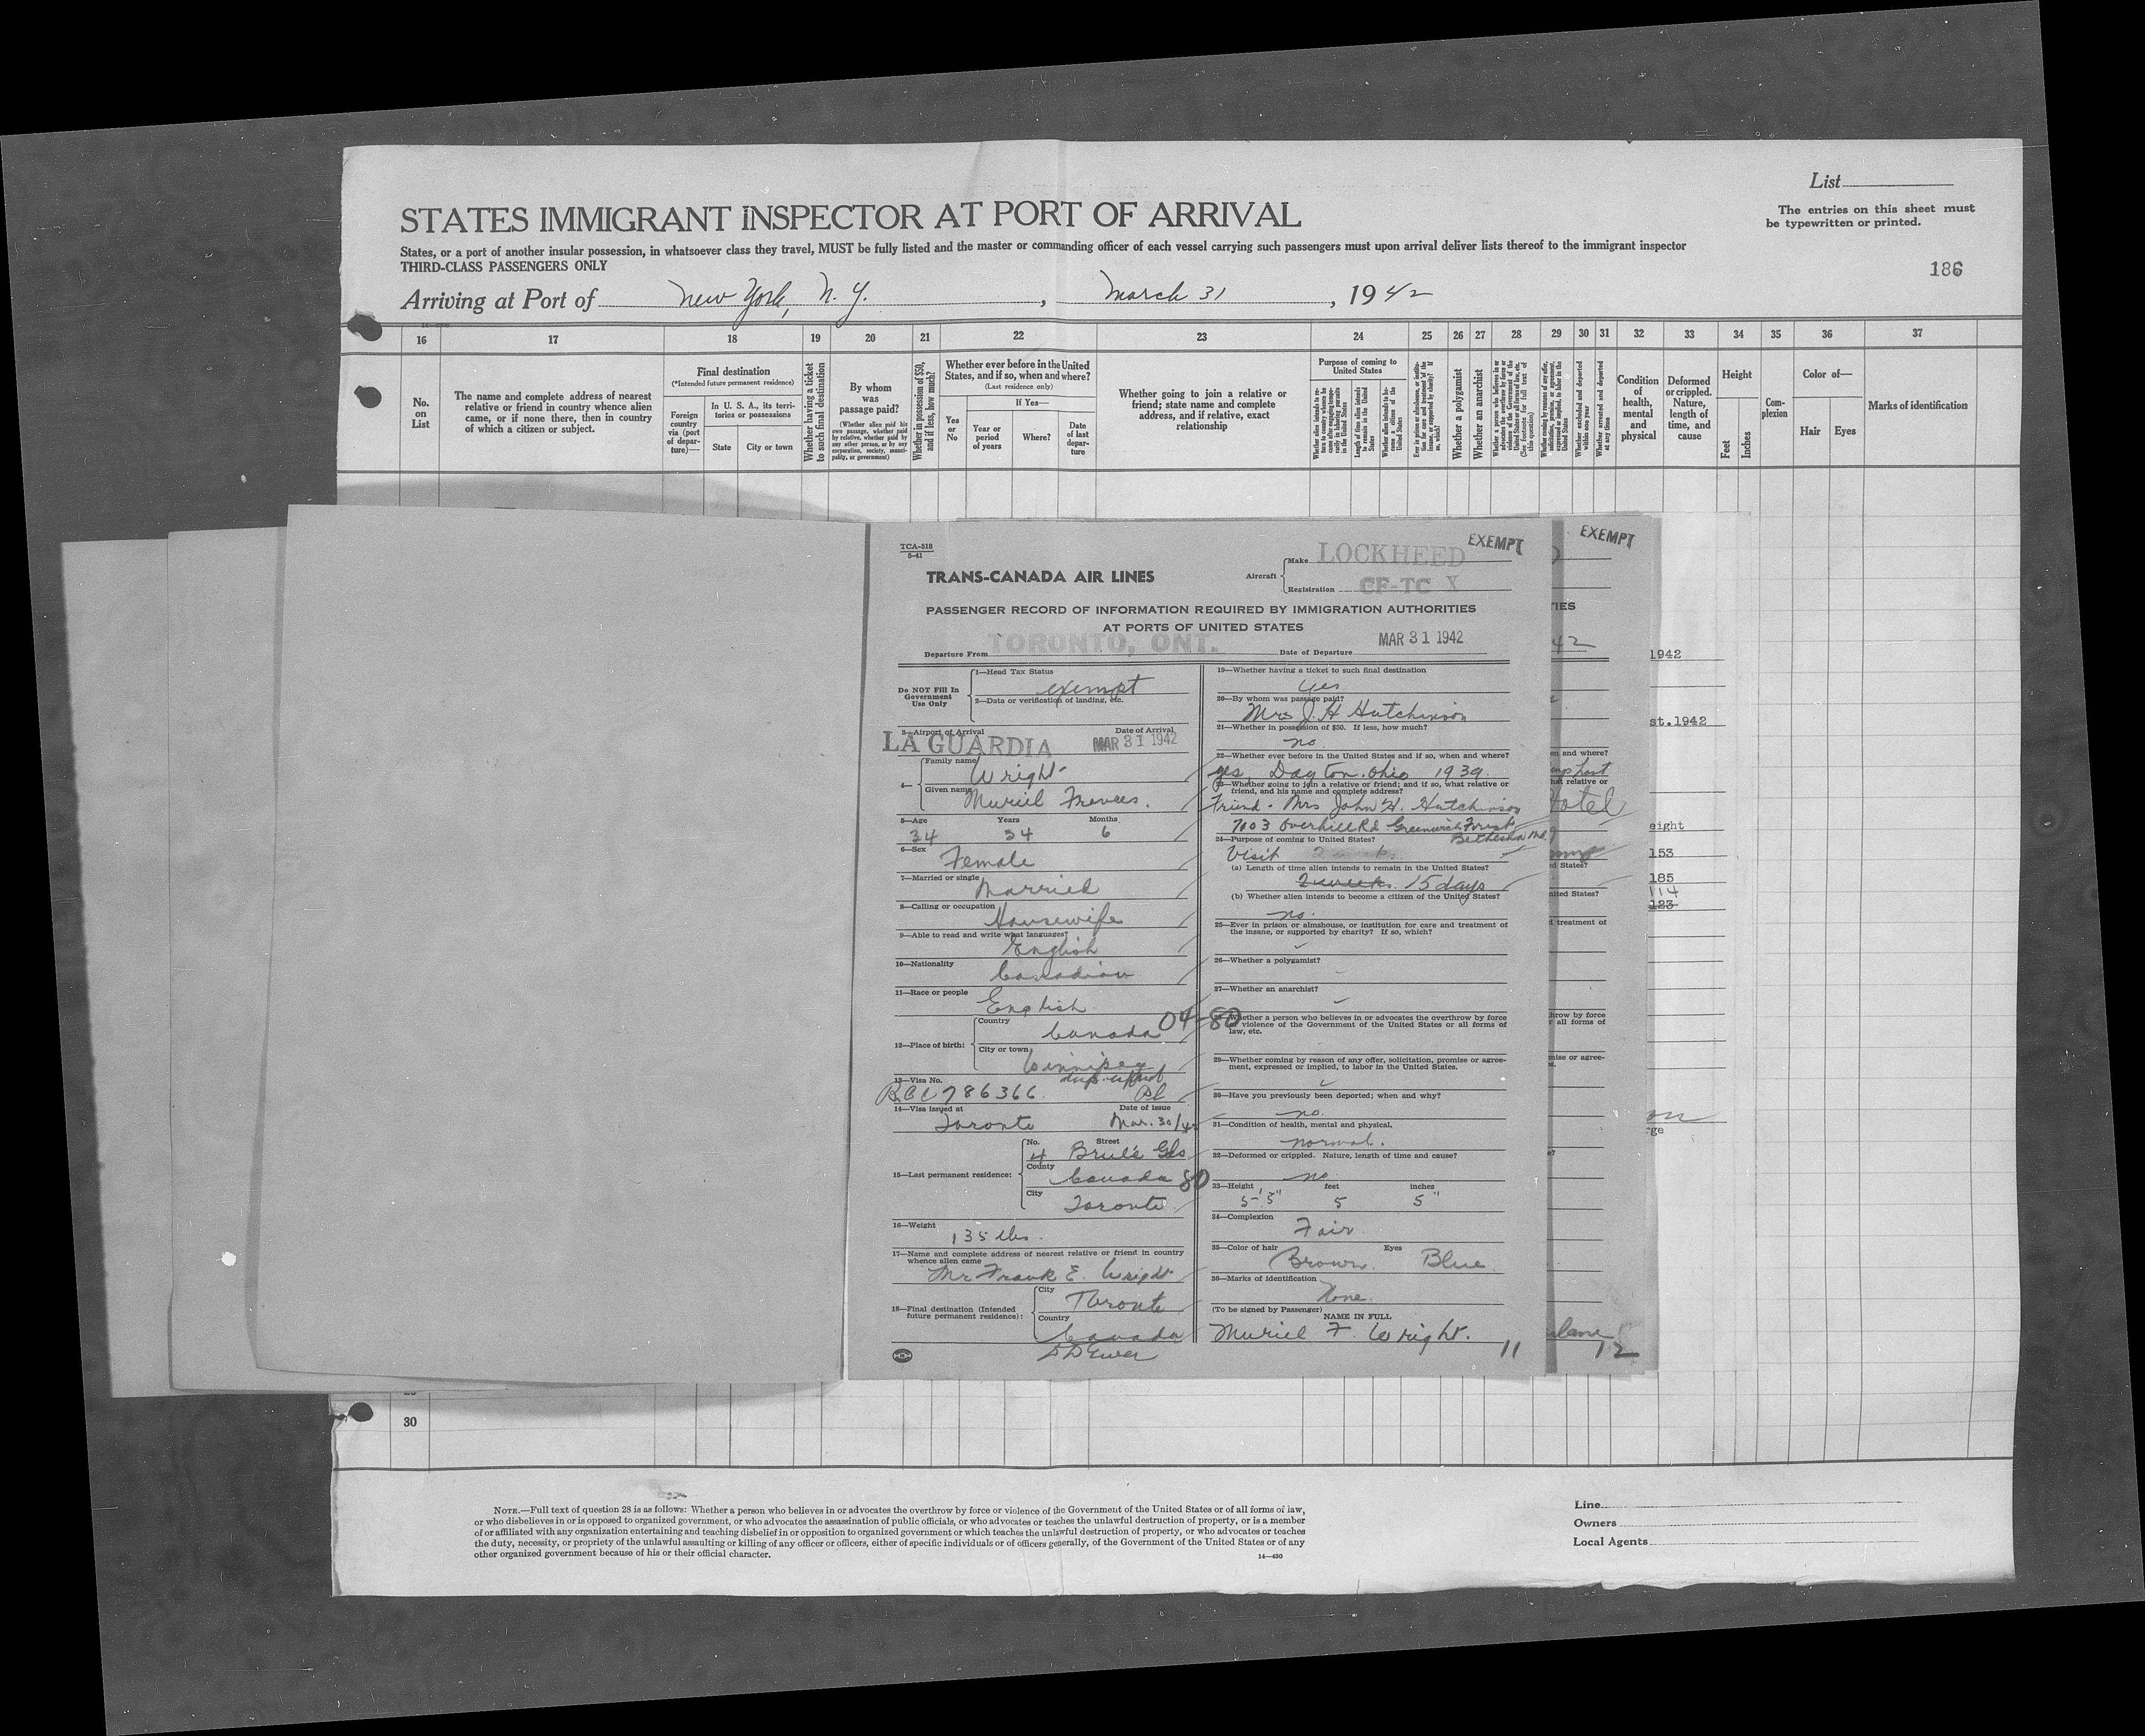 List
The entries on this sheet must
be typewritten or printed.
186
STATES IMMIGRANT INSPECTOR AT PORT OF ARRIVAL
States, or a port of another insular possession, in whatsoever class they travel, MUST be fully listed and the master or commanding officer of each vessel carrying such passengers must upon arrival deliver lists thereof to the immigrant inspector
THIRD-CLASS PASSENGERS ONLY
Arriving at Port of New York, N. Y. , March 31 , 1942
16 17 18 19 20 21 22 23 24 25 26 27 28 29 30 31 32 33 34 35 36 37
No.
on
List
The name and complete address of nearest
relative or friend in country whence alien
came, or if none there, then in country
of which a citizen or subject.
Final destination
(*Intended future permanent residence)
Foreign
country
via (port
of depar-
ture)—
In U. S. A., its terri-
tories or possessions
State
City or town
Whether having a ticket
to such final destination
By whom
was
passage paid?
(Whether alien paid his
own passage, whether paid
by relative, whether paid by
any other person, or by any
corporation, society, munici-
pality, or government)
Whether in possession of $50,
and if less, how much?
Whether ever before in the United
States, and if so, when and where?
(Last residence only)
Yes
or
No
If Yes—
Year or
period
of years
Where?
Date
of last
depar-
ture
Whether going to join a relative or
friend; state name and complete
address, and if relative, exact
relationship
Purpose of coming to
United States
Whether a polygamist
Whether an anarchist
Whether excluded and deported
within one year
Whether arrested and deported
at any time
Condition
of
health,
mental
and
physical
Deformed
or crippled.
Nature,
length of
time, and
cause
Height
Feet
Inches
Com-
plexion
Color of—
Hair
Eyes
Marks of identification
TCA-518
5-41
TRANS-CANADA AIR LINES
Aircraft
Make LOCKHEED
EXEMPT
Registration CF-TC X
PASSENGER RECORD OF INFORMATION REQUIRED BY IMMIGRATION AUTHORITIES
AT PORTS OF UNITED STATES
Departure From TORONTO, ONT. Date of Departure MAR 31 1942
Do NOT Fill In
Government
Use Only
1—Head Tax Status
exempt
2—Data or verification of landing, etc.
3—Airport of Arrival Date of Arrival
LA GUARDIA MAR 31 1942
4—
Family name Wright
Given name Muriel Frances.
5—Age Years Months
34 34 6
6—Sex
Female
7—Married or single
Married
8—Calling or occupation
Housewife
9—Able to read and write what languages?
English
10—Nationality
Canadian
11—Race or people
English
12—Place of birth:
Country
Canada 04-80
City or town
Winnipeg
13—Visa No.
BCC 786366
14—Visa issued at Date of issue
Toronto Mar. 30/42
15—Last permanent residence:
No. Street
4 Brulé Gds
County
Canada 80
City
Toronto
16—Weight
135 lbs.
17—Name and complete address of nearest relative or friend in country
whence alien came
Mr Frank E. Wright
18—Final destination (Intended
future permanent residence):
City
Toronto
Country
Canada
19—Whether having a ticket to such final destination
yes
20—By whom was passage paid?
Mrs J. H Hutchinson
21—Whether in possession of $50. If less, how much?
no
22—Whether ever before in the United States and if so, when and where?
yes, Dayton. Ohio 1939.
23—Whether going to join a relative or friend; and if so, what relative or
friend, and his name and complete address?
Friend - Mrs John H. Hutchinson
7003 Overhill Rd Greenwich Forest
Bethesda Md.
24—Purpose of coming to United States?
Visit
(a) Length of time alien intends to remain in the United States?
2 weeks. 15 days
(b) Whether alien intends to become a citizen of the United States?
no.
25—Ever in prison or almshouse, or institution for care and treatment of
the insane, or supported by charity? If so, which?
26—Whether a polygamist?
27—Whether an anarchist?
28—Whether a person who believes in or advocates the overthrow by force
or violence of the Government of the United States or all forms of
law, etc.
29—Whether coming by reason of any offer, solicitation, promise or agree-
ment, expressed or implied, to labor in the United States.
30—Have you previously been deported; when and why?
no.
31—Condition of health, mental and physical.
normal.
32—Deformed or crippled. Nature, length of time and cause?
no
33—Height feet inches
5-5" 5 5"
34—Complexion
Fair
35—Color of hair Eyes
Brown. Blue.
36—Marks of identification
None.
(To be signed by Passenger)
NAME IN FULL
Muriel F. Wright.
11
EXEMPT
IES
42
en and where?
hat relative or
Hotel
d States?
nited States?
d treatment of
hrow by force
r all forms of
mise or agree-
12
1942
st.1942
eight
153
185
114
123
30
NOTE.—Full text of question 28 is as follows: Whether a person who believes in or advocates the overthrow by force or violence of the Government of the United States or of all forms of law,
or who disbelieves in or is opposed to organized government, or who advocates the assassination of public officials, or who advocates or teaches the unlawful destruction of property, or is a member
of or affiliated with any organization entertaining and teaching disbelief in or opposition to organized government or which teaches the unlawful destruction of property, or who advocates or teaches
the duty, necessity, or propriety of the unlawful assaulting or killing of any officer or officers, either of specific individuals or of officers generally, of the Government of the United States or of any
other organized government because of his or their official character.
14—430
Line
Owners
Local Agents